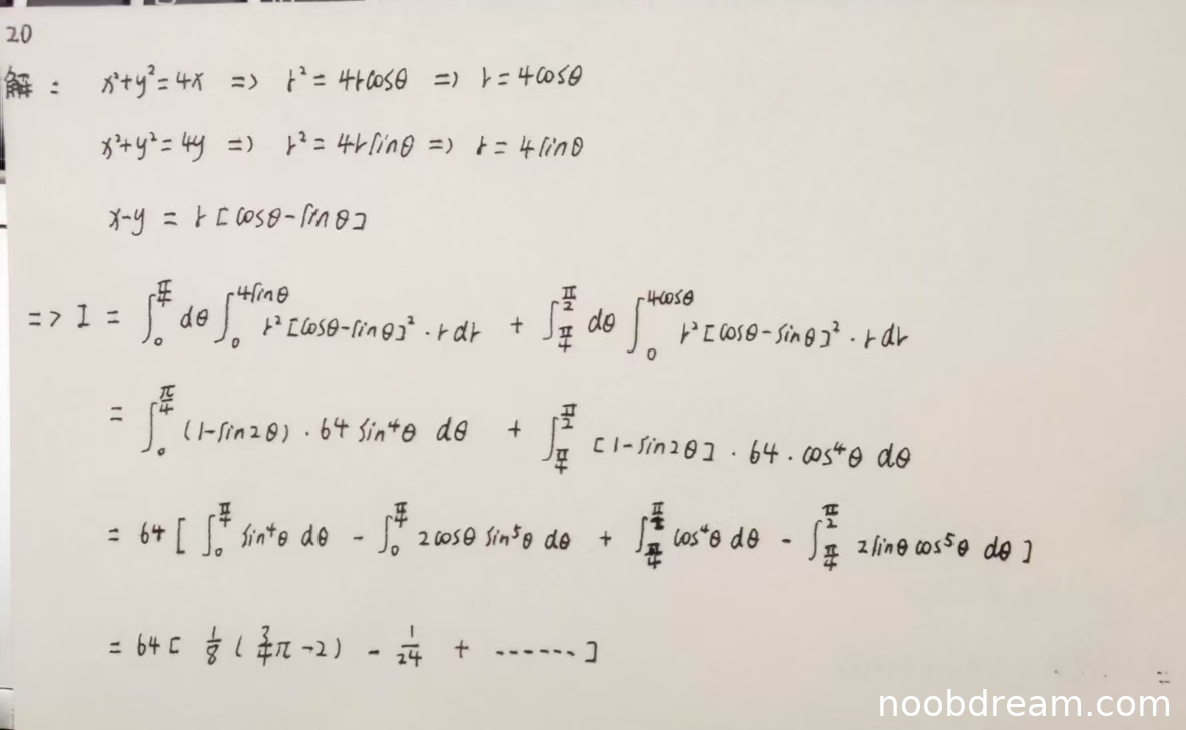 20
解: x²+y²=4x => r²=4rcosθ => r=4cosθ
x²+y²=4y => r²=4rsinθ => r=4sinθ
x-y = r[cosθ-sinθ]
=> I = ∫₀^{π/4} dθ ∫₀^{4sinθ} r²[cosθ-sinθ]²·rdr + ∫_{π/4}^{π/2} dθ ∫₀^{4cosθ} r²[cosθ-sinθ]²·rdr
= ∫₀^{π/4} (1-sin2θ)·64sin⁴θ dθ + ∫_{π/4}^{π/2} [1-sin2θ]·64·cos⁴θ dθ
= 64[∫₀^{π/4} sin⁴θ dθ - ∫₀^{π/4} 2cosθ sin⁵θ dθ + ∫_{π/4}^{π/2} cos⁴θ dθ - ∫_{π/4}^{π/2} 2sinθcos⁵θ dθ]
= 64[ 1/8 (3/4π-2) - 1/24 + ……]
noobdream.com